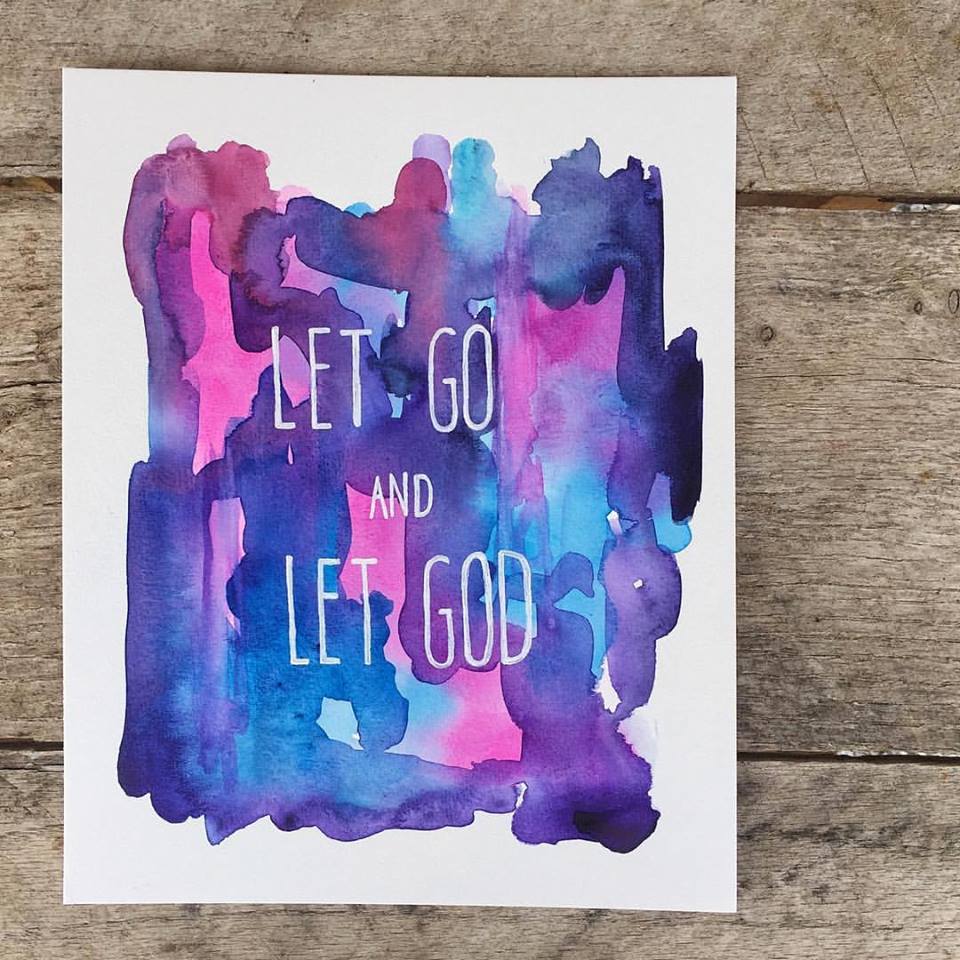 LET GO
AND
LET GOD